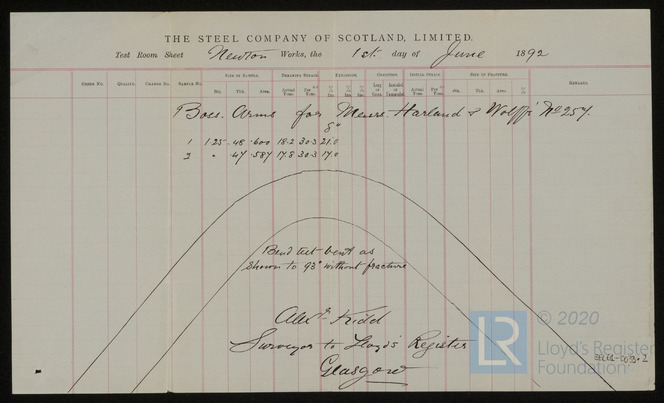 THE STEEL COMPANY OF SCOTLAND, LIMITED.
Test Room Sheet Newton Works, the 1st day of June 1892
ORDER NO. QUALITY. CHARGE NO. SAMPLE NO. SIZE OF SAMPLE. BREAKING STRAIN. EXTENSION. REMARKS.
Brd. Thk. Area.
Boss Arms for Messrs. Harland & Wolff's No 257.
8"
1 1.25 .48 .600 18.2 30.3 21.0
2 " .47 .587 17.8 30.3 17.0
Bend test bent as
shown to 93° without fracture
Alexr. Kidd
Surveyor to Lloyd's Register
Glasgow
© 2020
LR Lloyd's Register
Foundation